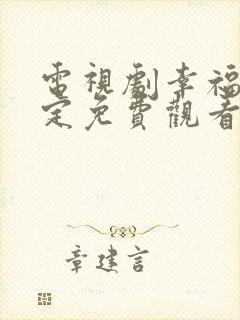 電視劇幸福
定免費觀看
章建言